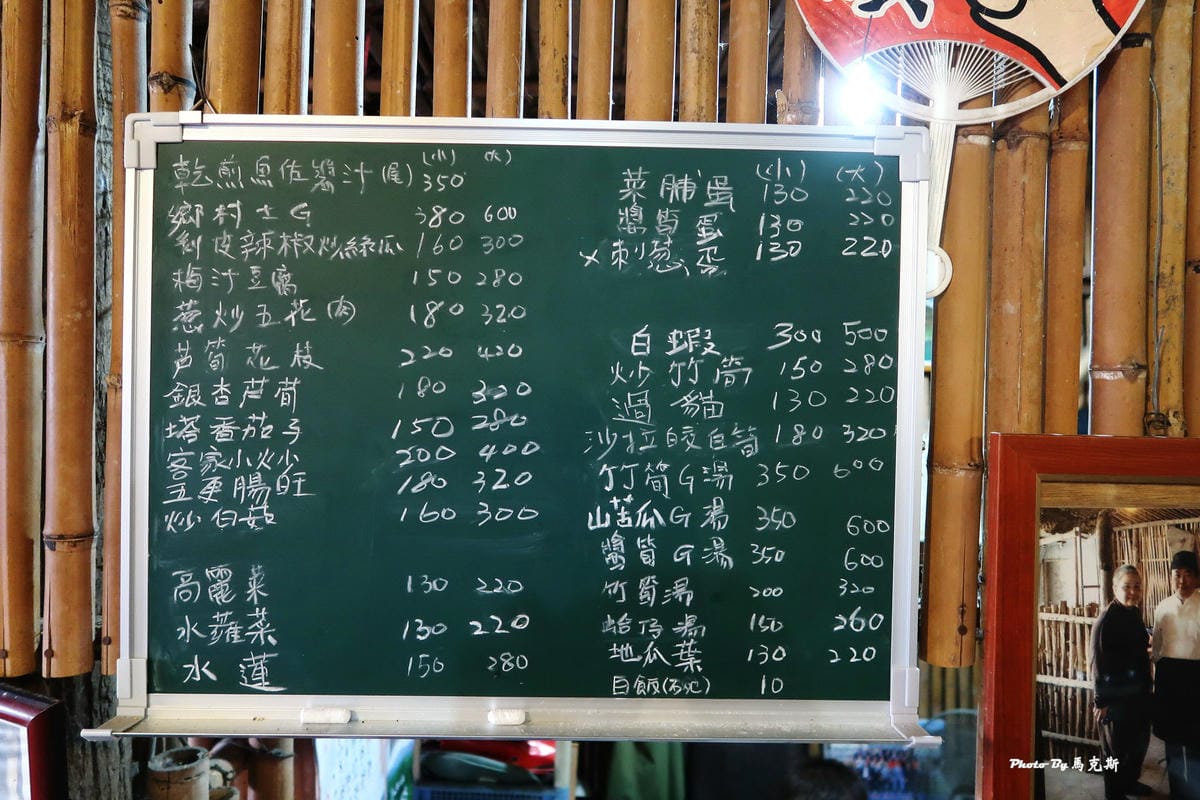 (小) (大)
乾煎魚佐醬汁(尾) 350
鄉村土G 380 600
剝皮辣椒炒絲瓜 160 300
梅汁豆腐 150 280
蔥炒五花(肉) 180 320
芦筍花枝 220 420
銀杏芦筍 180 320
塔香茄子 150 280
客家小炒 200 400
五更腸旺 180 320
炒白菇 160 300
高麗菜 130 220
水蓮菜 130 220
水蓮 150 280
(小) (大)
菜脯蛋 130 220
醬筍蛋 130 220
×刺蔥蛋 130 220
白蝦 300 500
炒竹筍 150 280
過貓 130 220
沙拉皎白筍 180 320
竹筍G湯 350 600
山苦瓜G湯 350 600
醬筍G湯 350 600
竹筍湯 200 320
蛤仔湯 150 260
地瓜葉 130 220
白飯 10
Photo By 馬克斯